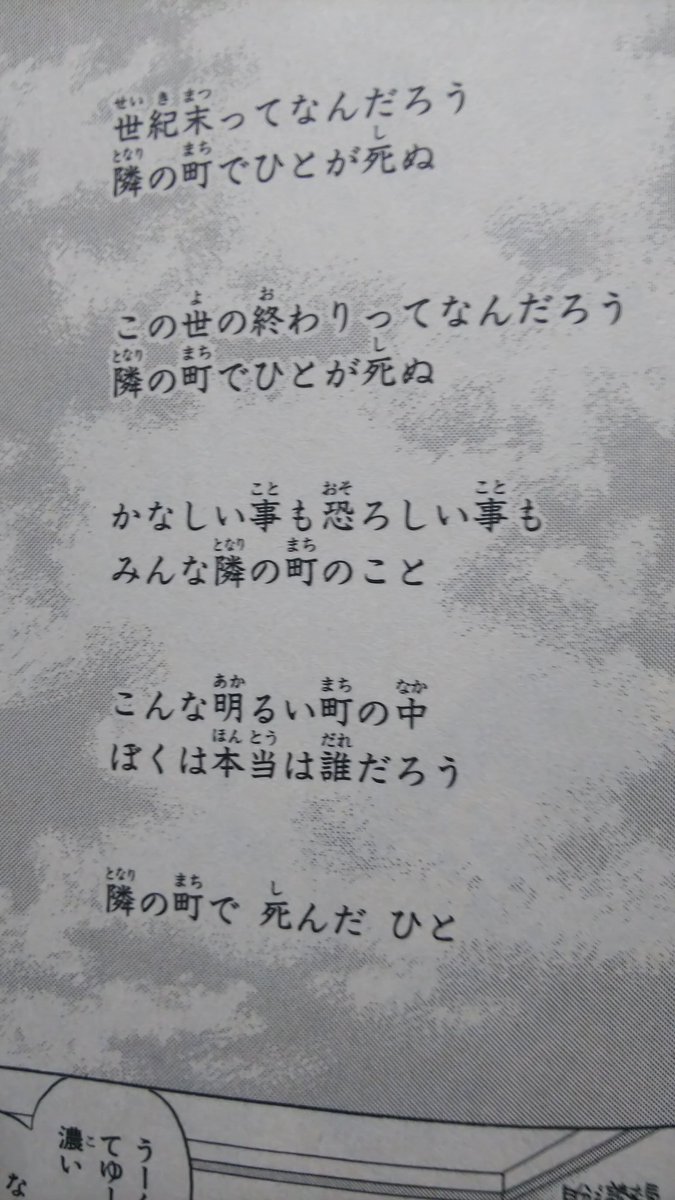 世紀末ってなんだろう
隣の町でひとが死ぬ
この世の終わりってなんだろう
隣の町でひとが死ぬ
かなしい事も恐ろしい事も
みんな隣の町のこと
こんな明るい町の中
ぼくは本当は誰だろう
隣の町で 死んだ ひと
うーん
てゆー
濃い
な